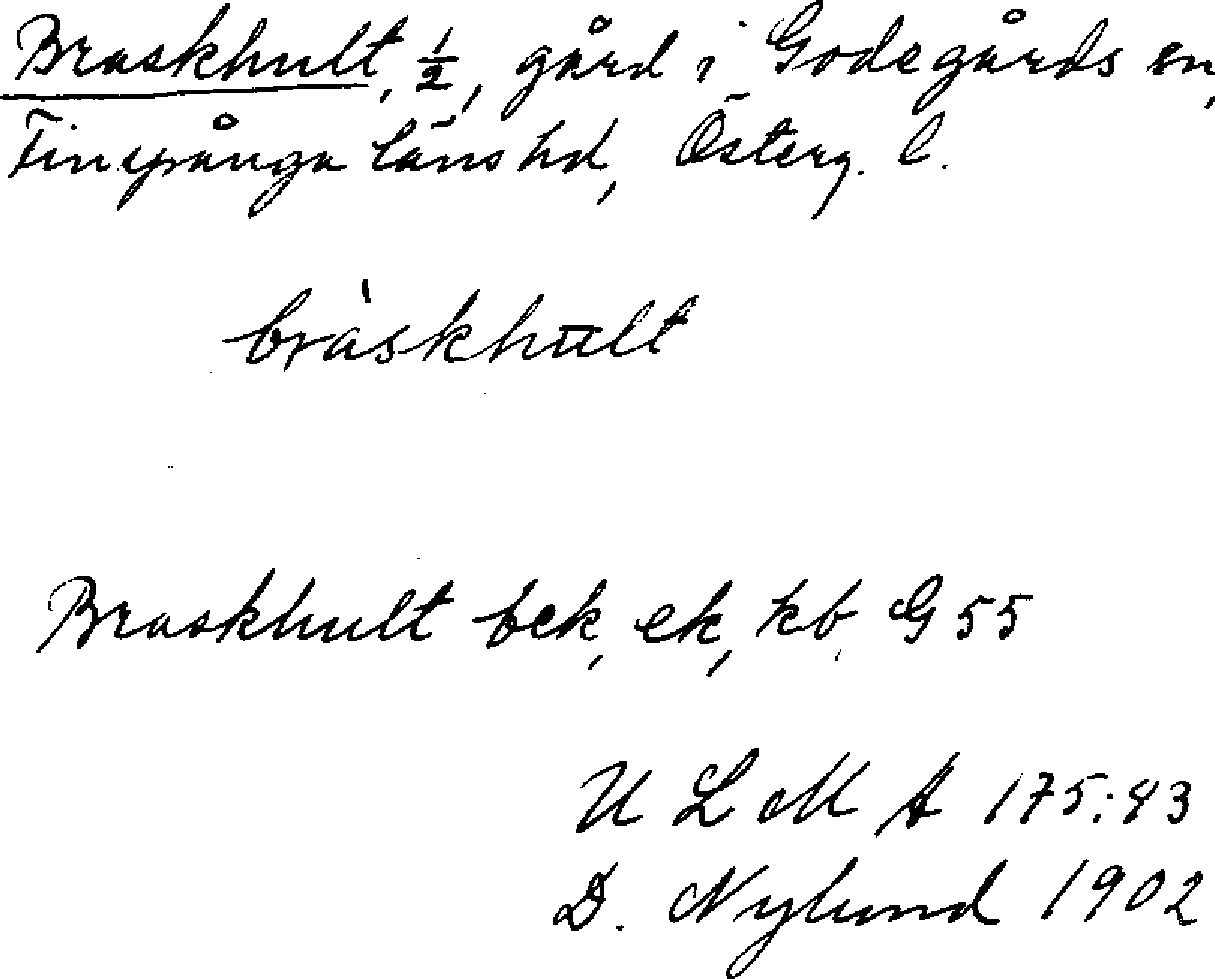 Braskhult, ½, gård i Godegårds sn,
Finspånga läns hd, Österg. l.
bràskhult
Braskhult bek, ek, kb, G 55
U L M A 175:43
D. Nylund 1902